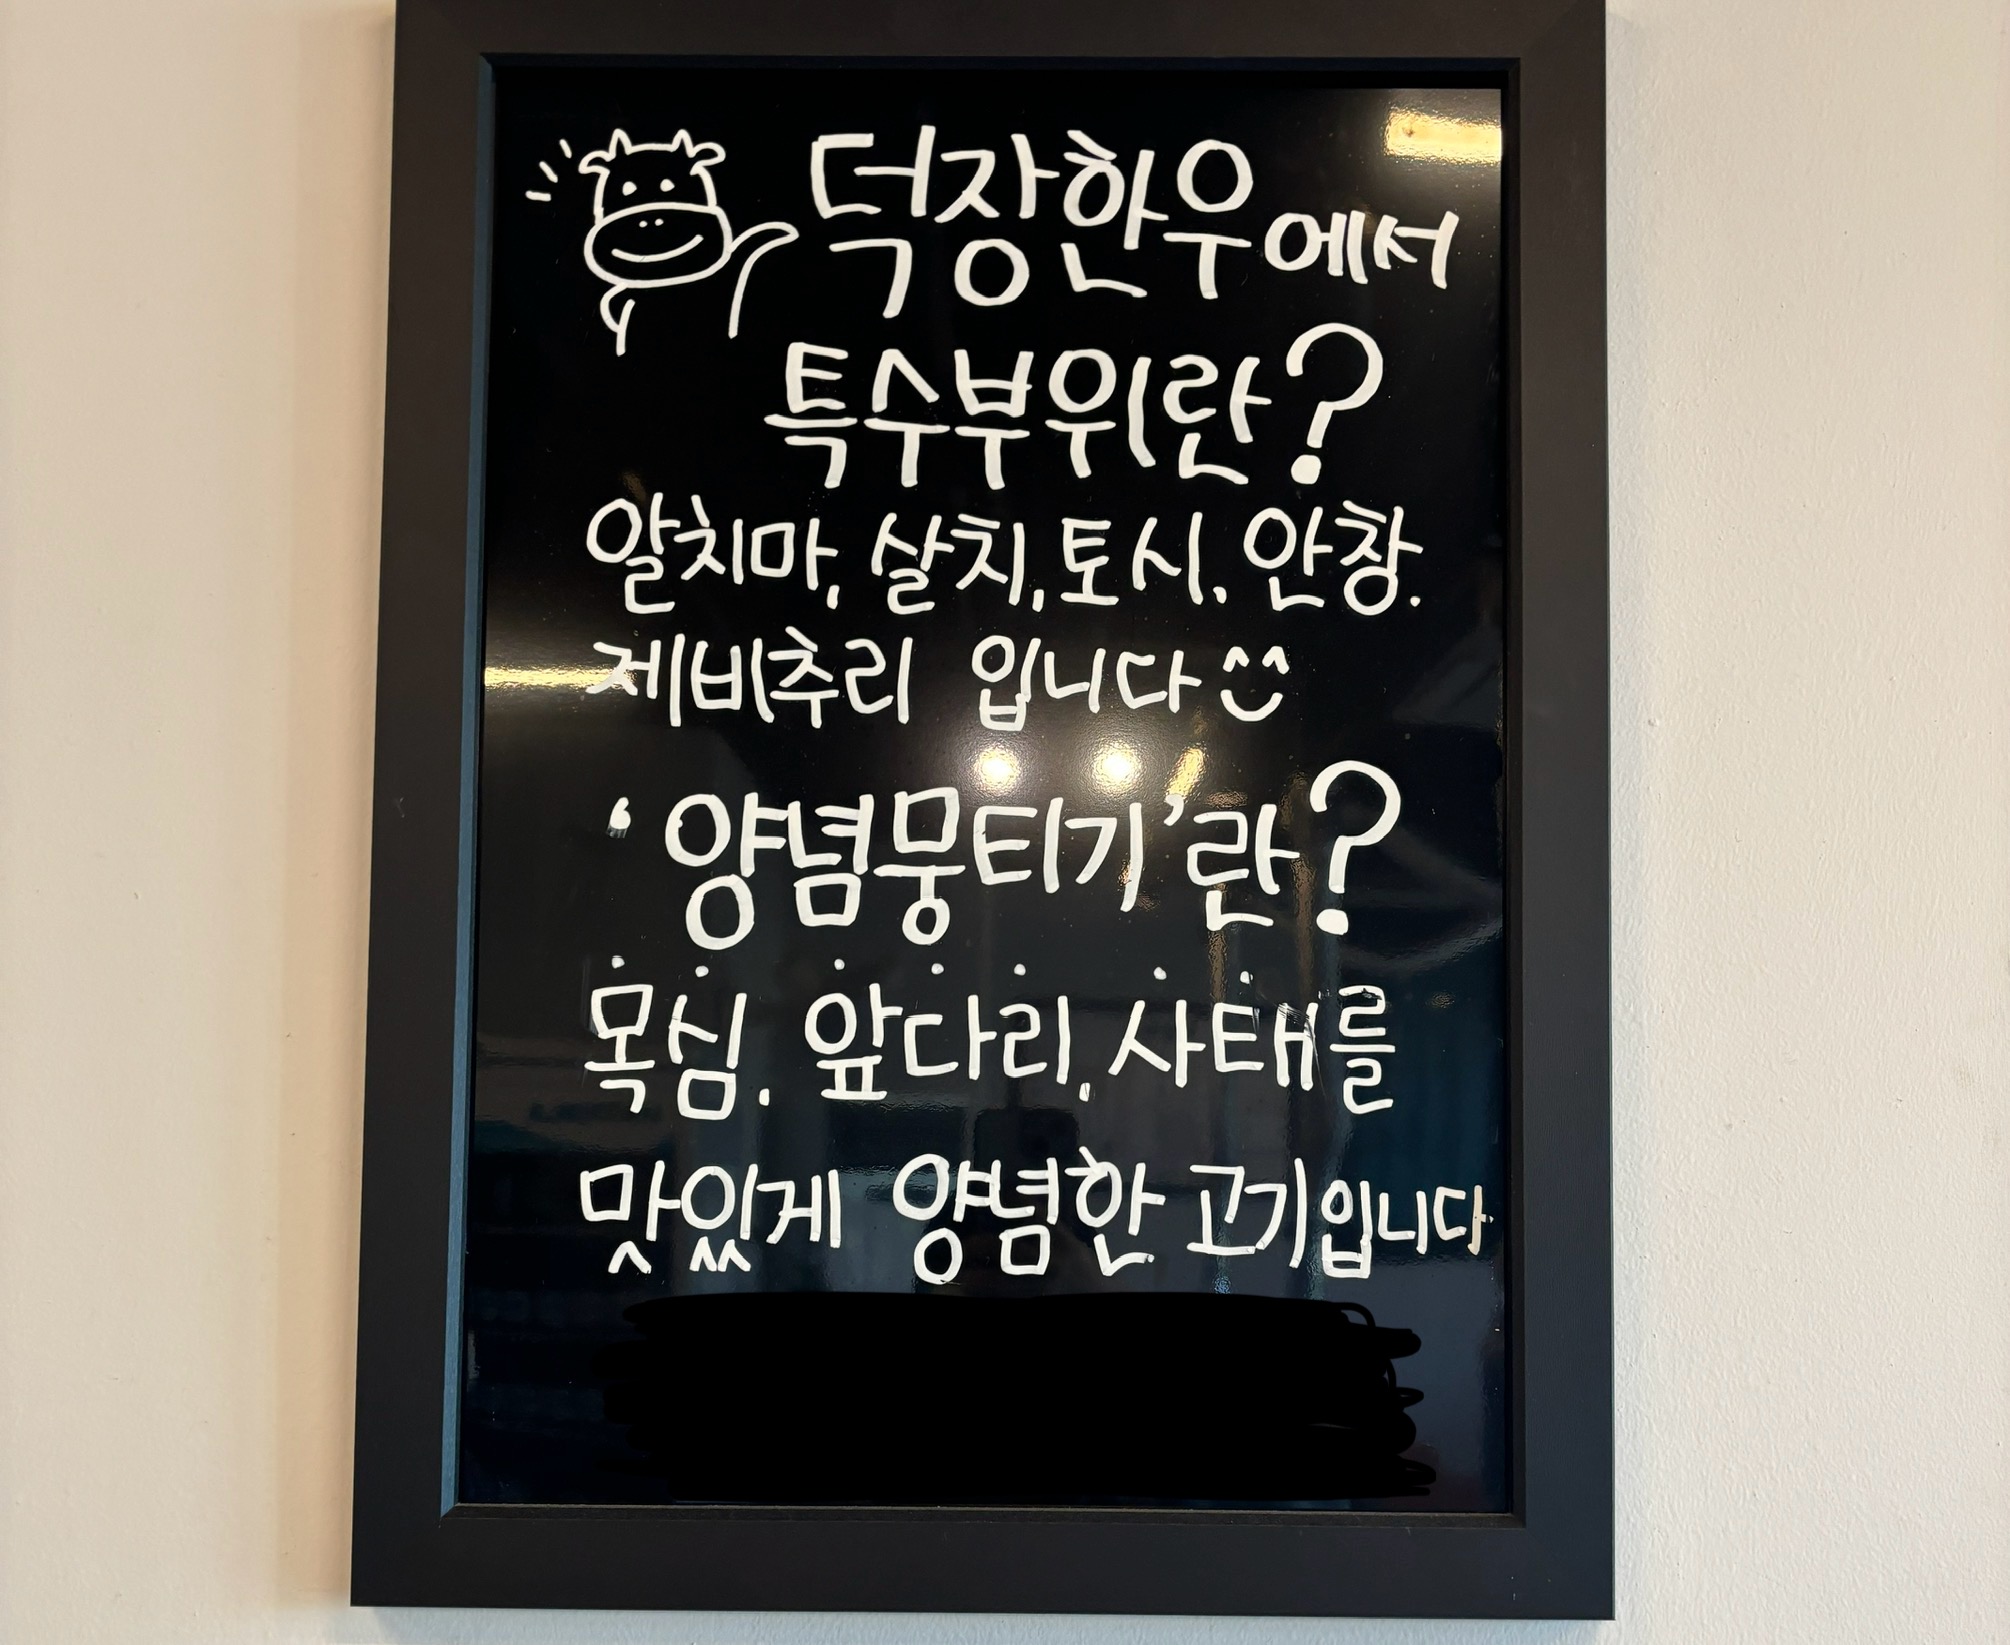 덕장한우에서
특수부위란?
알치마, 살치, 토시. 안창.
제비추리 입니다^^
'양념뭉티기'란?
목심. 앞다리, 사태를
맛있게 양념한 고기입니다.